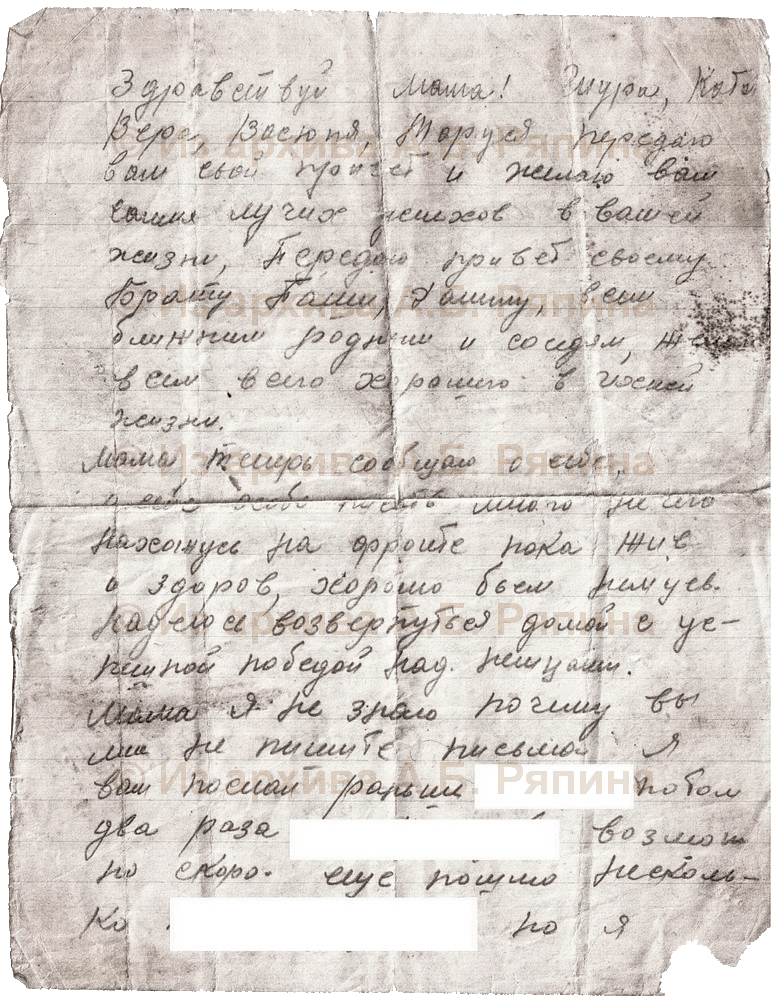 Здравствуй Мама! Шура, Катя
Вера, Васюня, Маруся передаю
вам свой привет и желаю вам
самих лучих успихов в вашей
жизни, Передаю привет своему
брату Паши, всем
ближним родным и соседям,
всем всего хорошего в ихней
жизни.
Мама теперь сообщаю о себе,
о себе писать много не чего
нахожусь на фронте пока жив
и здоров, хорошо бьем немцев.
Надеюсь возвернуться домой с ус-
пешной победой над. немцами.
Мама я не знаю почему вы
мне не пишите письма. Я
вам послал раньши потом
два раза возмож
но скоро. еще пошлю несколь-
ко но я
© Из архива А.Б. Ряпина
© Из архива А.Б. Ряпина
© Из архива А.Б. Ряпина
© Из архива А.Б. Ряпина
© Из архива А.Б. Ряпина